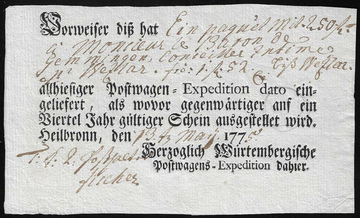 Vorweiser diß hat Ein paquet Mit 250 f.
à Monsieur le Baron de
Gemmingen, Conseiller intime
 Wetzlar
allhiesiger Postwagen-Expedition dato ein-
geliefert, als wovor gegenwärtiger auf ein
Viertel Jahr gültiger Schein ausgestellt wird.
Heilbronn, den 13. May. 1775
Herzoglich Würtembergische
Postwagens-Expedition dahier.